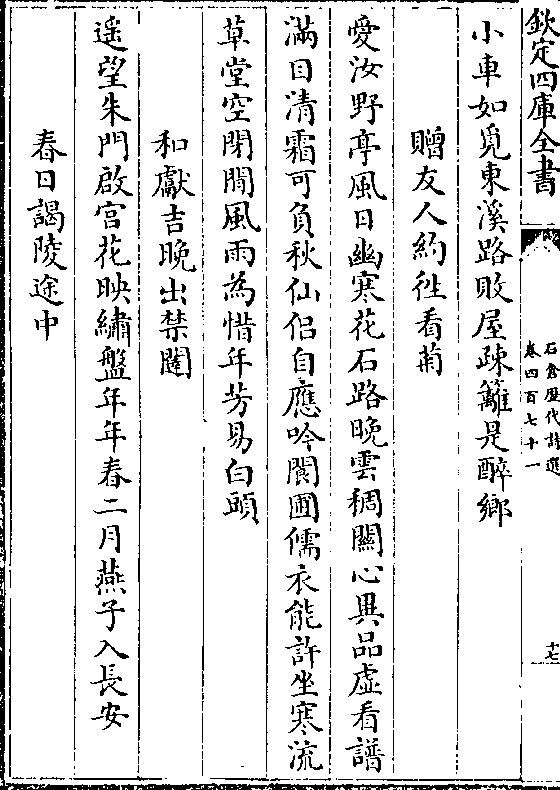 欽定四庫全書
石倉歷代詩選
卷四百七十一
十七
小車如覓東溪路敗屋疎籬是醉鄉
贈友人約徃看菊
愛汝野亭風日幽寒花石路晩雲稠關心異品虛看譜
滿目清霜可負秋仙侣自應吟閬圃儒衣能許坐寒流
草堂空閉闗風雨為惜年芳易白頭
和獻吉晩出禁闥
遥望朱門啟宫花映繡盤年年春二月燕子入長安
春日謁陵途中